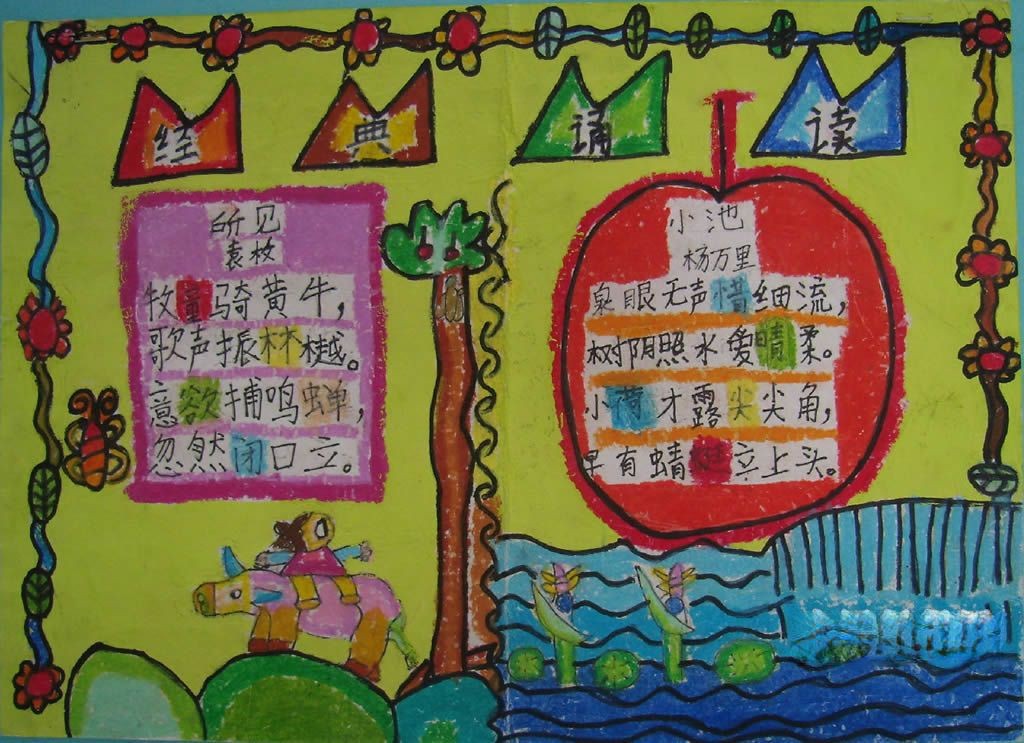 经典诵读
所见
袁枚
牧童骑黄牛，
歌声振林樾。
意欲捕鸣蝉，
忽然闭口立。
小池
杨万里
泉眼无声惜细流，
树阴照水爱晴柔。
小荷才露尖尖角，
早有蜻蜓立上头。